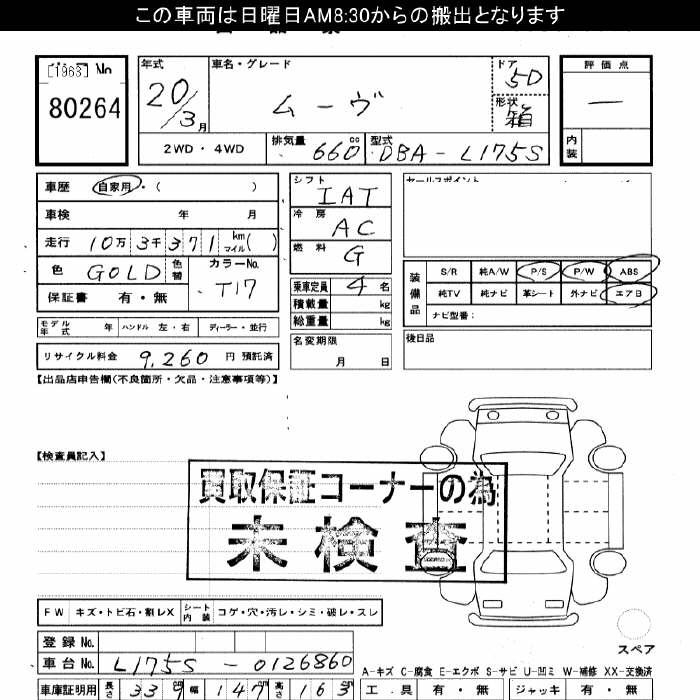 この車両は日曜日AM8:30からの搬出となります
[1963] No 年式 車名・グレード ドア 評価点
80264 20/3月 ムーヴ 5D 形状 箱 —
2WD・4WD 排気量 660cc 型式 DBA-L175S 内装
車歴 自家用・( ) シフト IAT セールスポイント
車検 年 月 冷房 AC
走行 10万3千371 km マイル( ) 燃料 G
色 GOLD 色替 カラーNo. T17 乗車定員 4名 装備品 S/R 純A/W P/S P/W ABS
保証書 有・無 積載量 kg 純TV 純ナビ 革シート 外ナビ エアB
総重量 kg ナビ型番:
モデル年式 年 ハンドル 左・右 ディーラー・並行 名変期限 月 日 後日品
リサイクル料金 9,260 円 預託済
【出品店申告欄(不良箇所・欠品・注意事項等)】
【検査員記入】
買取保証コーナーの為
未検査
FW キズ・トビ石・割レX シート内装 コゲ・穴・汚レ・シミ・破レ・スレ
登録No.
スペア
車台No. L175S-0126860
A-キズ C-腐食 E-エクボ S-サビ U-凹ミ W-補修 XX-交換済
車庫証明用 長さ 339 幅 147 高さ 163 工具 有・無 ジャッキ 有・無